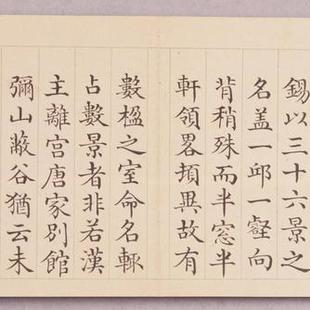 錫以三十六景之
名盖一邱一壑向
背稍殊而半窓半
軒領畧頓異故有
數楹之室命名輙
占數景者非若漢
主離宫唐家别館
彌山蔽谷猶云未